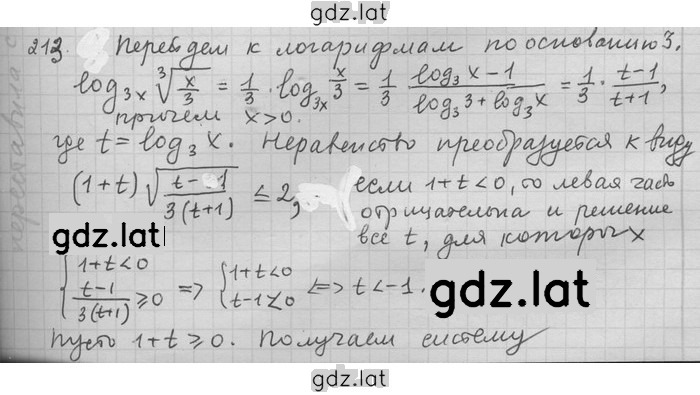 gdz.lat
213. Перейдем к логарифмам по основанию 3.
log₃ₓ ∛(x/3) = 1/3 · log₃ₓ x/3 = 1/3 · (log₃ x − 1)/(log₃ 3 + log₃ x) = 1/3 · (t−1)/(t+1),
причем x>0.
где t = log₃ x. Неравенство преобразуется к виду
(1+t) √((t−1)/(3(t+1))) ≤ 2, если 1+t<0, то левая часть
отрицательна и решение
все t, для которых
gdz.lat
{1+t<0; (t−1)/(3(t+1)) ≥ 0 => {1+t<0; t−1<0 <=> t<−1.
gdz.lat
Пусть 1+t ≥ 0. Получаем систему
gdz.lat